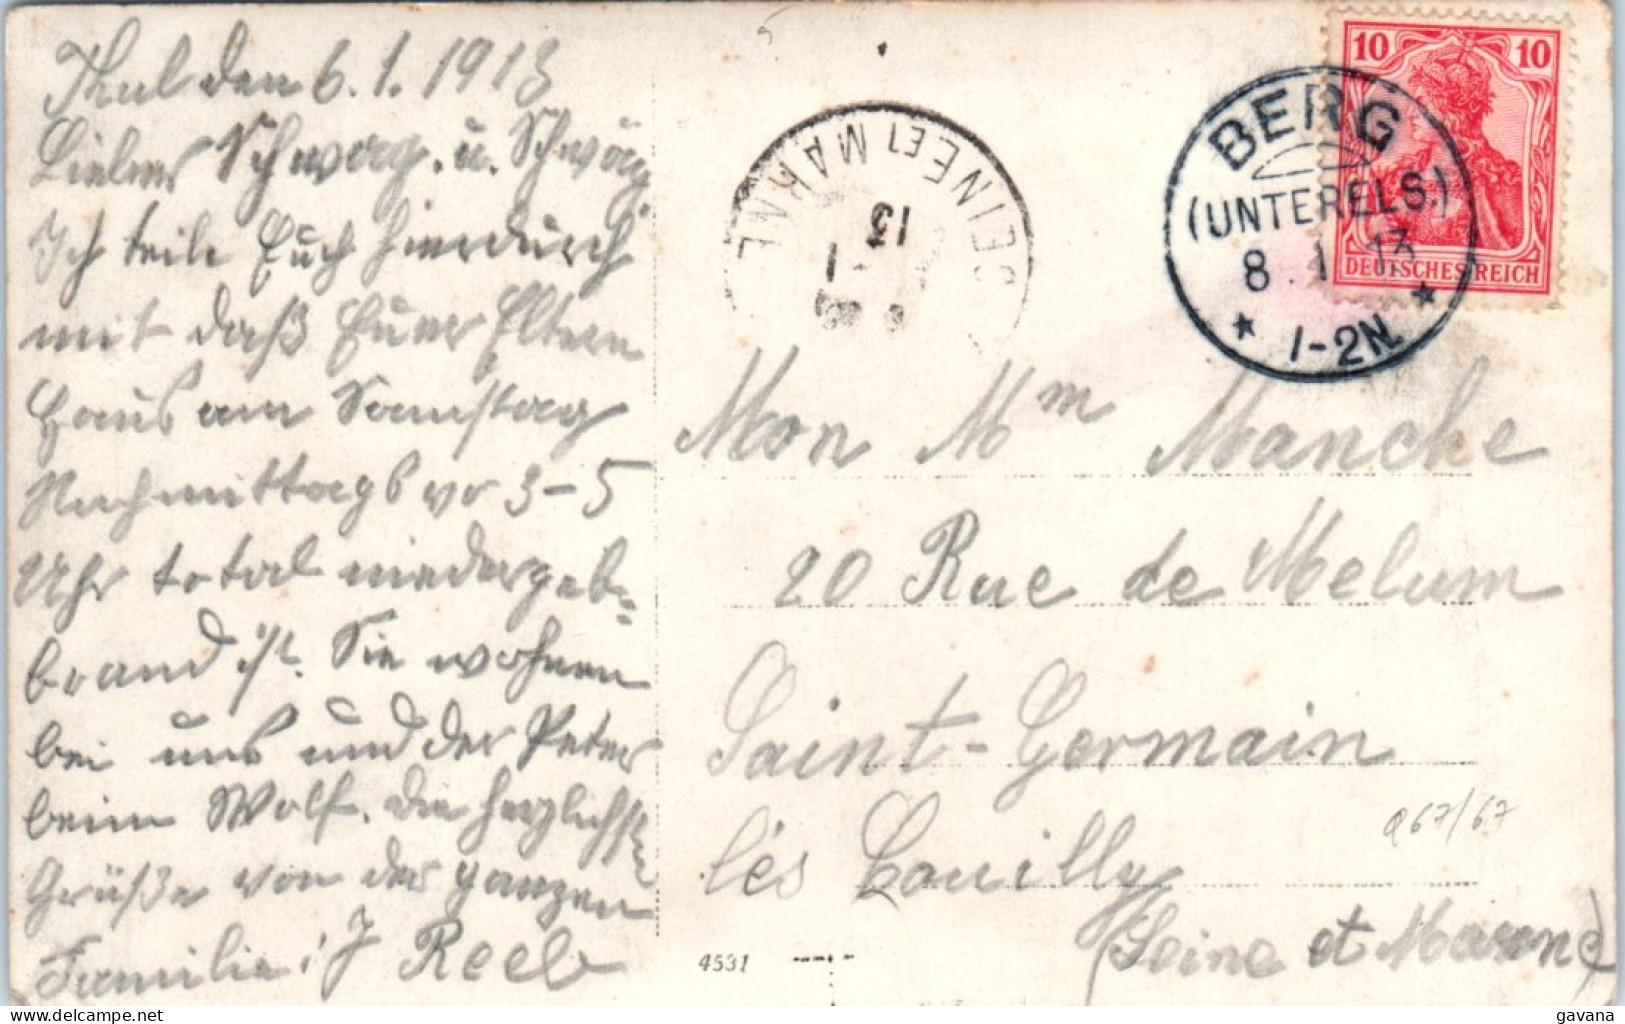 Thal den 6.1.1913
Lieber Schwag. u. Schwäg.
Ich teile Euch hierdurch
mit daß Euer Eltern
Haus am Samstag
Nachmittags vo 3-5
Uhr total niedergeb-
brand ist. Sie wohnen
bei uns und der Peter
beim Wolf. Die herzlichsten
Grüße von der ganzen
Familie: J Reeb
SEINE ET MARNE
1
13
10 10
DEUTSCHES REICH
BERG
(UNTERELS.)
8.1.13
* 1-2N. *
Mon Mm Manche
20 Rue de Melum
Saint-Germain
lés Couilly
(Seine et Marne)
Q67/67
4531
delcampe.net
gavana